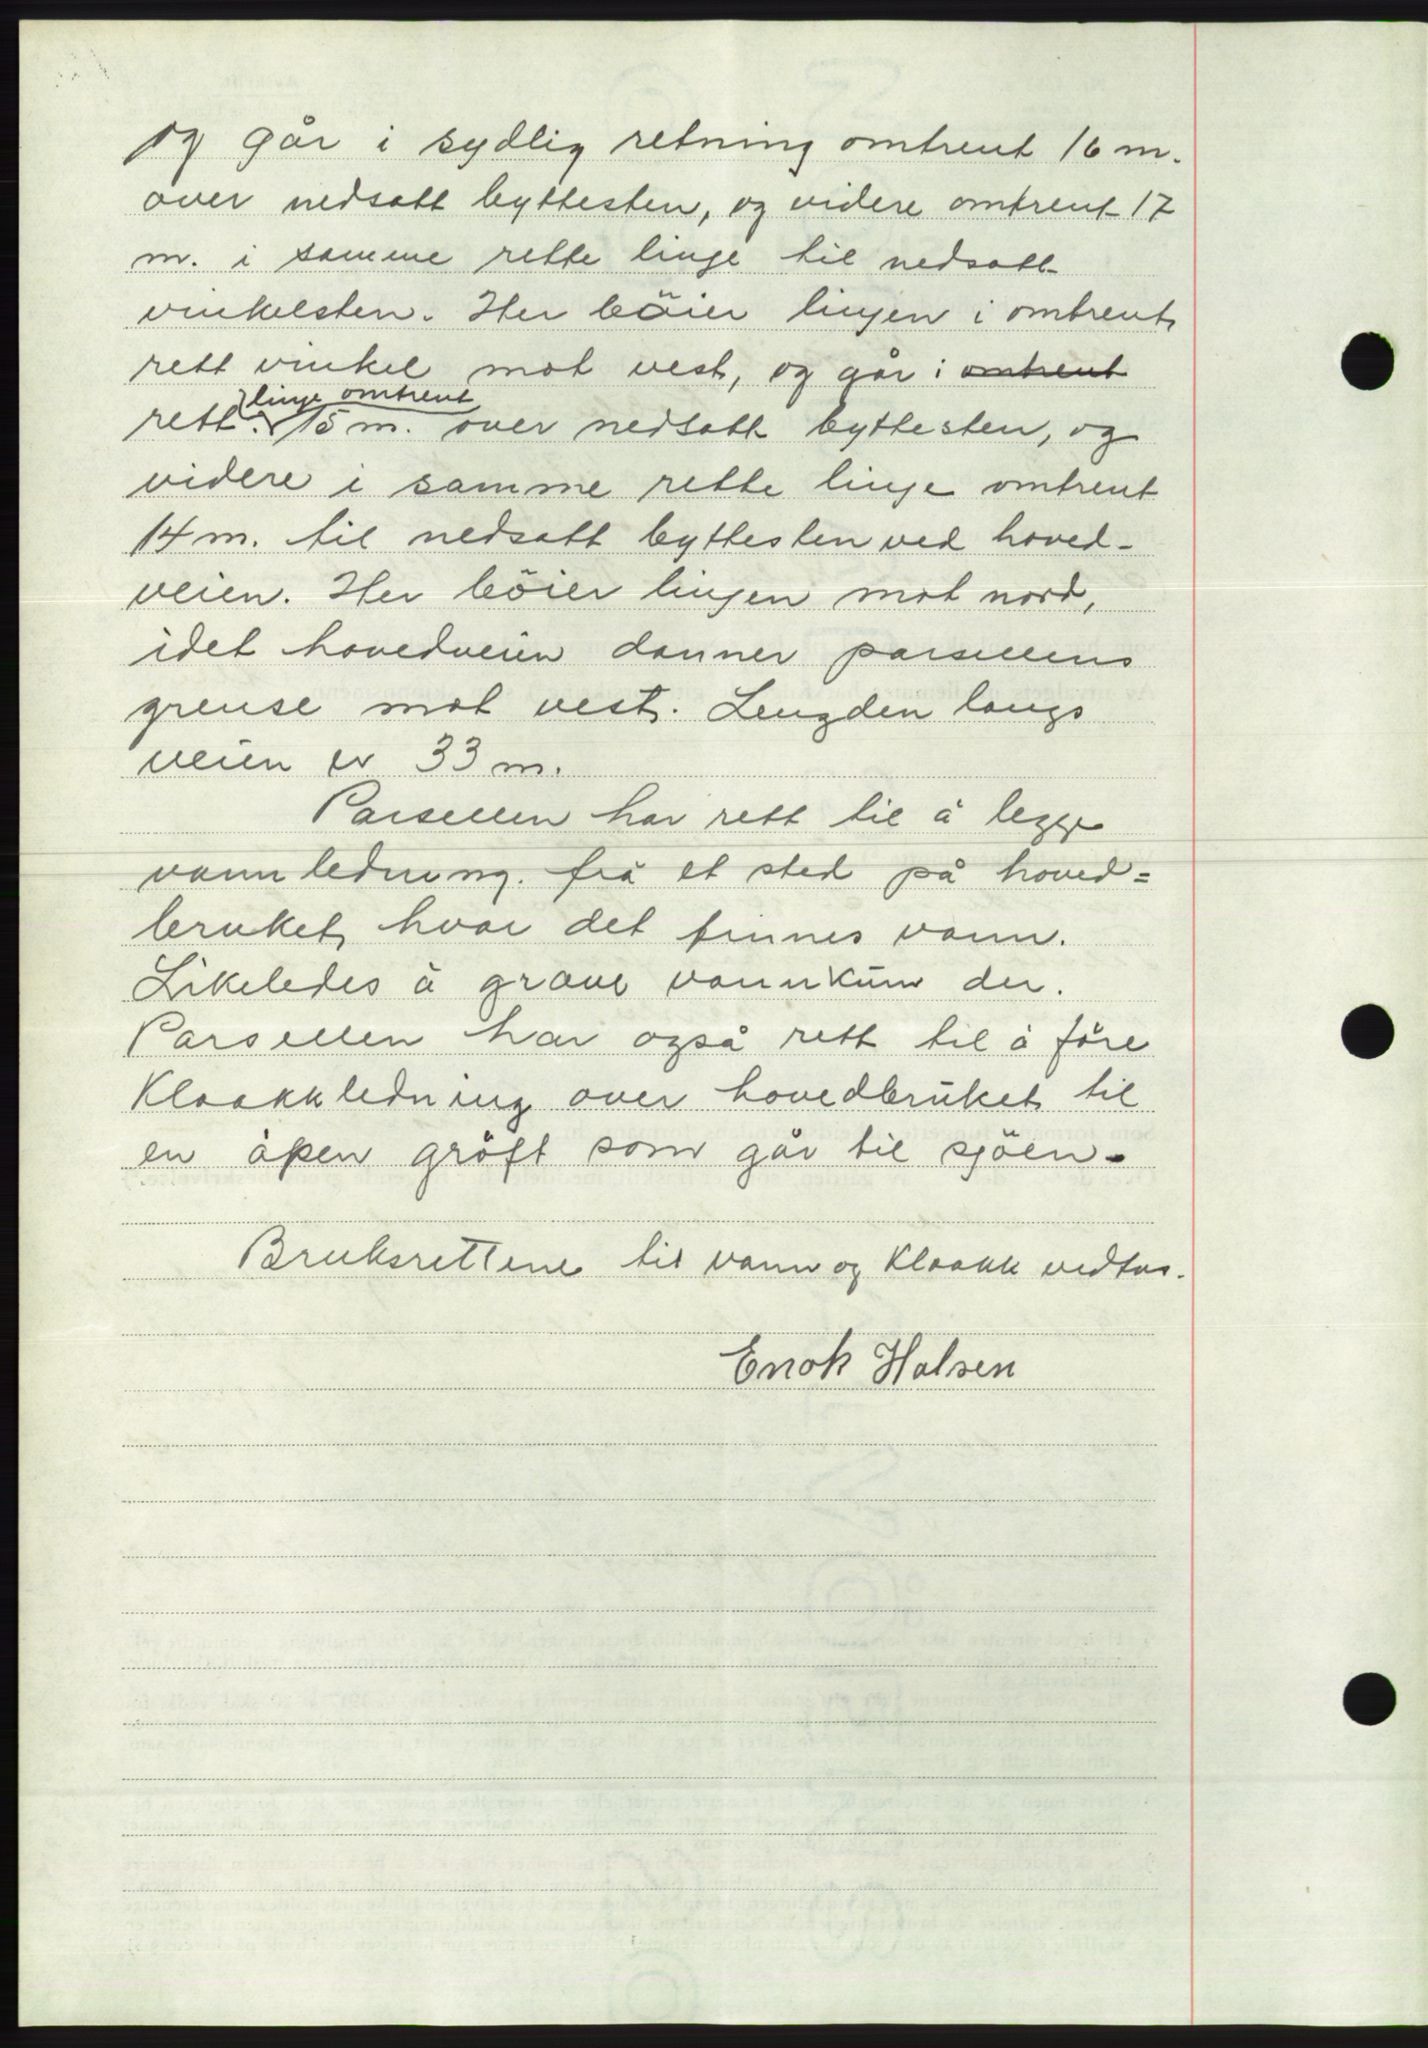 og går i sydlig retning omtrent 16 m.
over nedsatt byttesten, og videre omtrent 17
m. i samme rette linje til nedsatt
vinkelsten. Her böier linjen i omtrent
rett vinkel mot vest, og går i omtrent
linje omtrent
rett 15 m. over nedsatt byttesten, og
videre i samme rette linje omtrent
14 m. til nedsatt byttesten ved hoved-
veien. Her böier linjen mot nord,
idet hovedveien danner parsellens
grense mot vest. Lengden langs
veien er 33 m.
Parsellen har rett til å legge
vannledning. frå et sted på hoved=
bruket hvor det finnes vann.
Likeledes å grave vannkum der.
Parsellen har også rett til å före
Kloakkledning over hovedbruket til
en åpen gröft som går til sjöen.
Bruksrettene til vann og Kloakk vedtas.
Enok Halsen